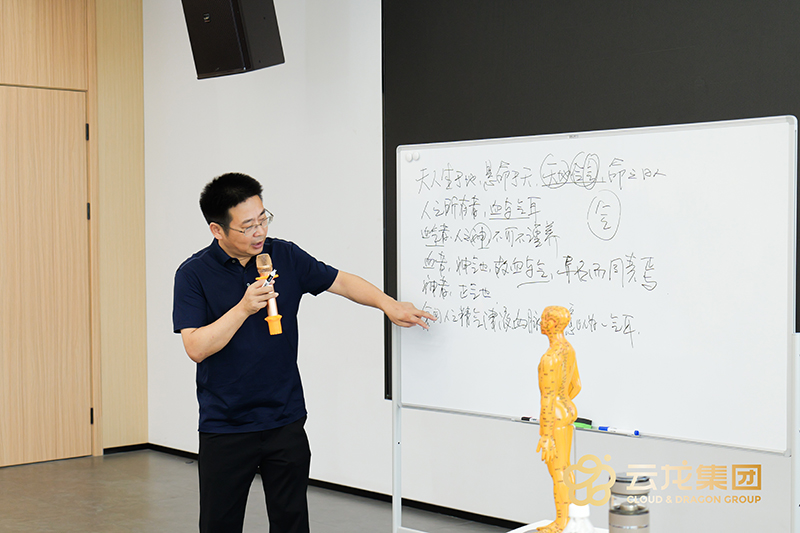 夫人生于地,悬命于天,天地合气,命之曰人
人之所有者,血与气耳
血气者,人之神,不可不谨养
气
血者,神气也,故血与气,异名而同类焉
神者,正气也
余闻人之精气津液血脉,意以为一气耳.
云龙集团
CLOUD & DRAGON GROUP